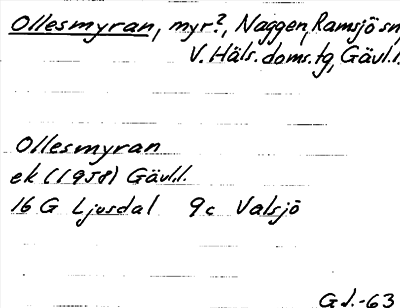 Ollesmyran, myr?, Naggen, Ramsjö sn,
V. Häls. doms.tg, Gävl.l.
Ollesmyran
ek (1958) Gävl.l.
16 G Ljusdal 9c Valsjö
G J.-63